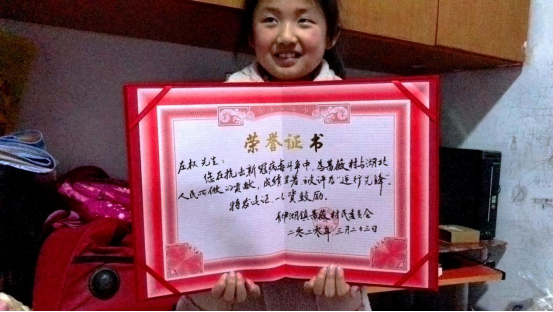 荣誉证书
先生：
您在抗击新冠病毒斗争中，为村与湖北
人民所做的贡献，成绩显著，被评为“逆行先锋”，
特发此证，以资鼓励。
湖镇村民委员会
二〇二〇年三月二十三日